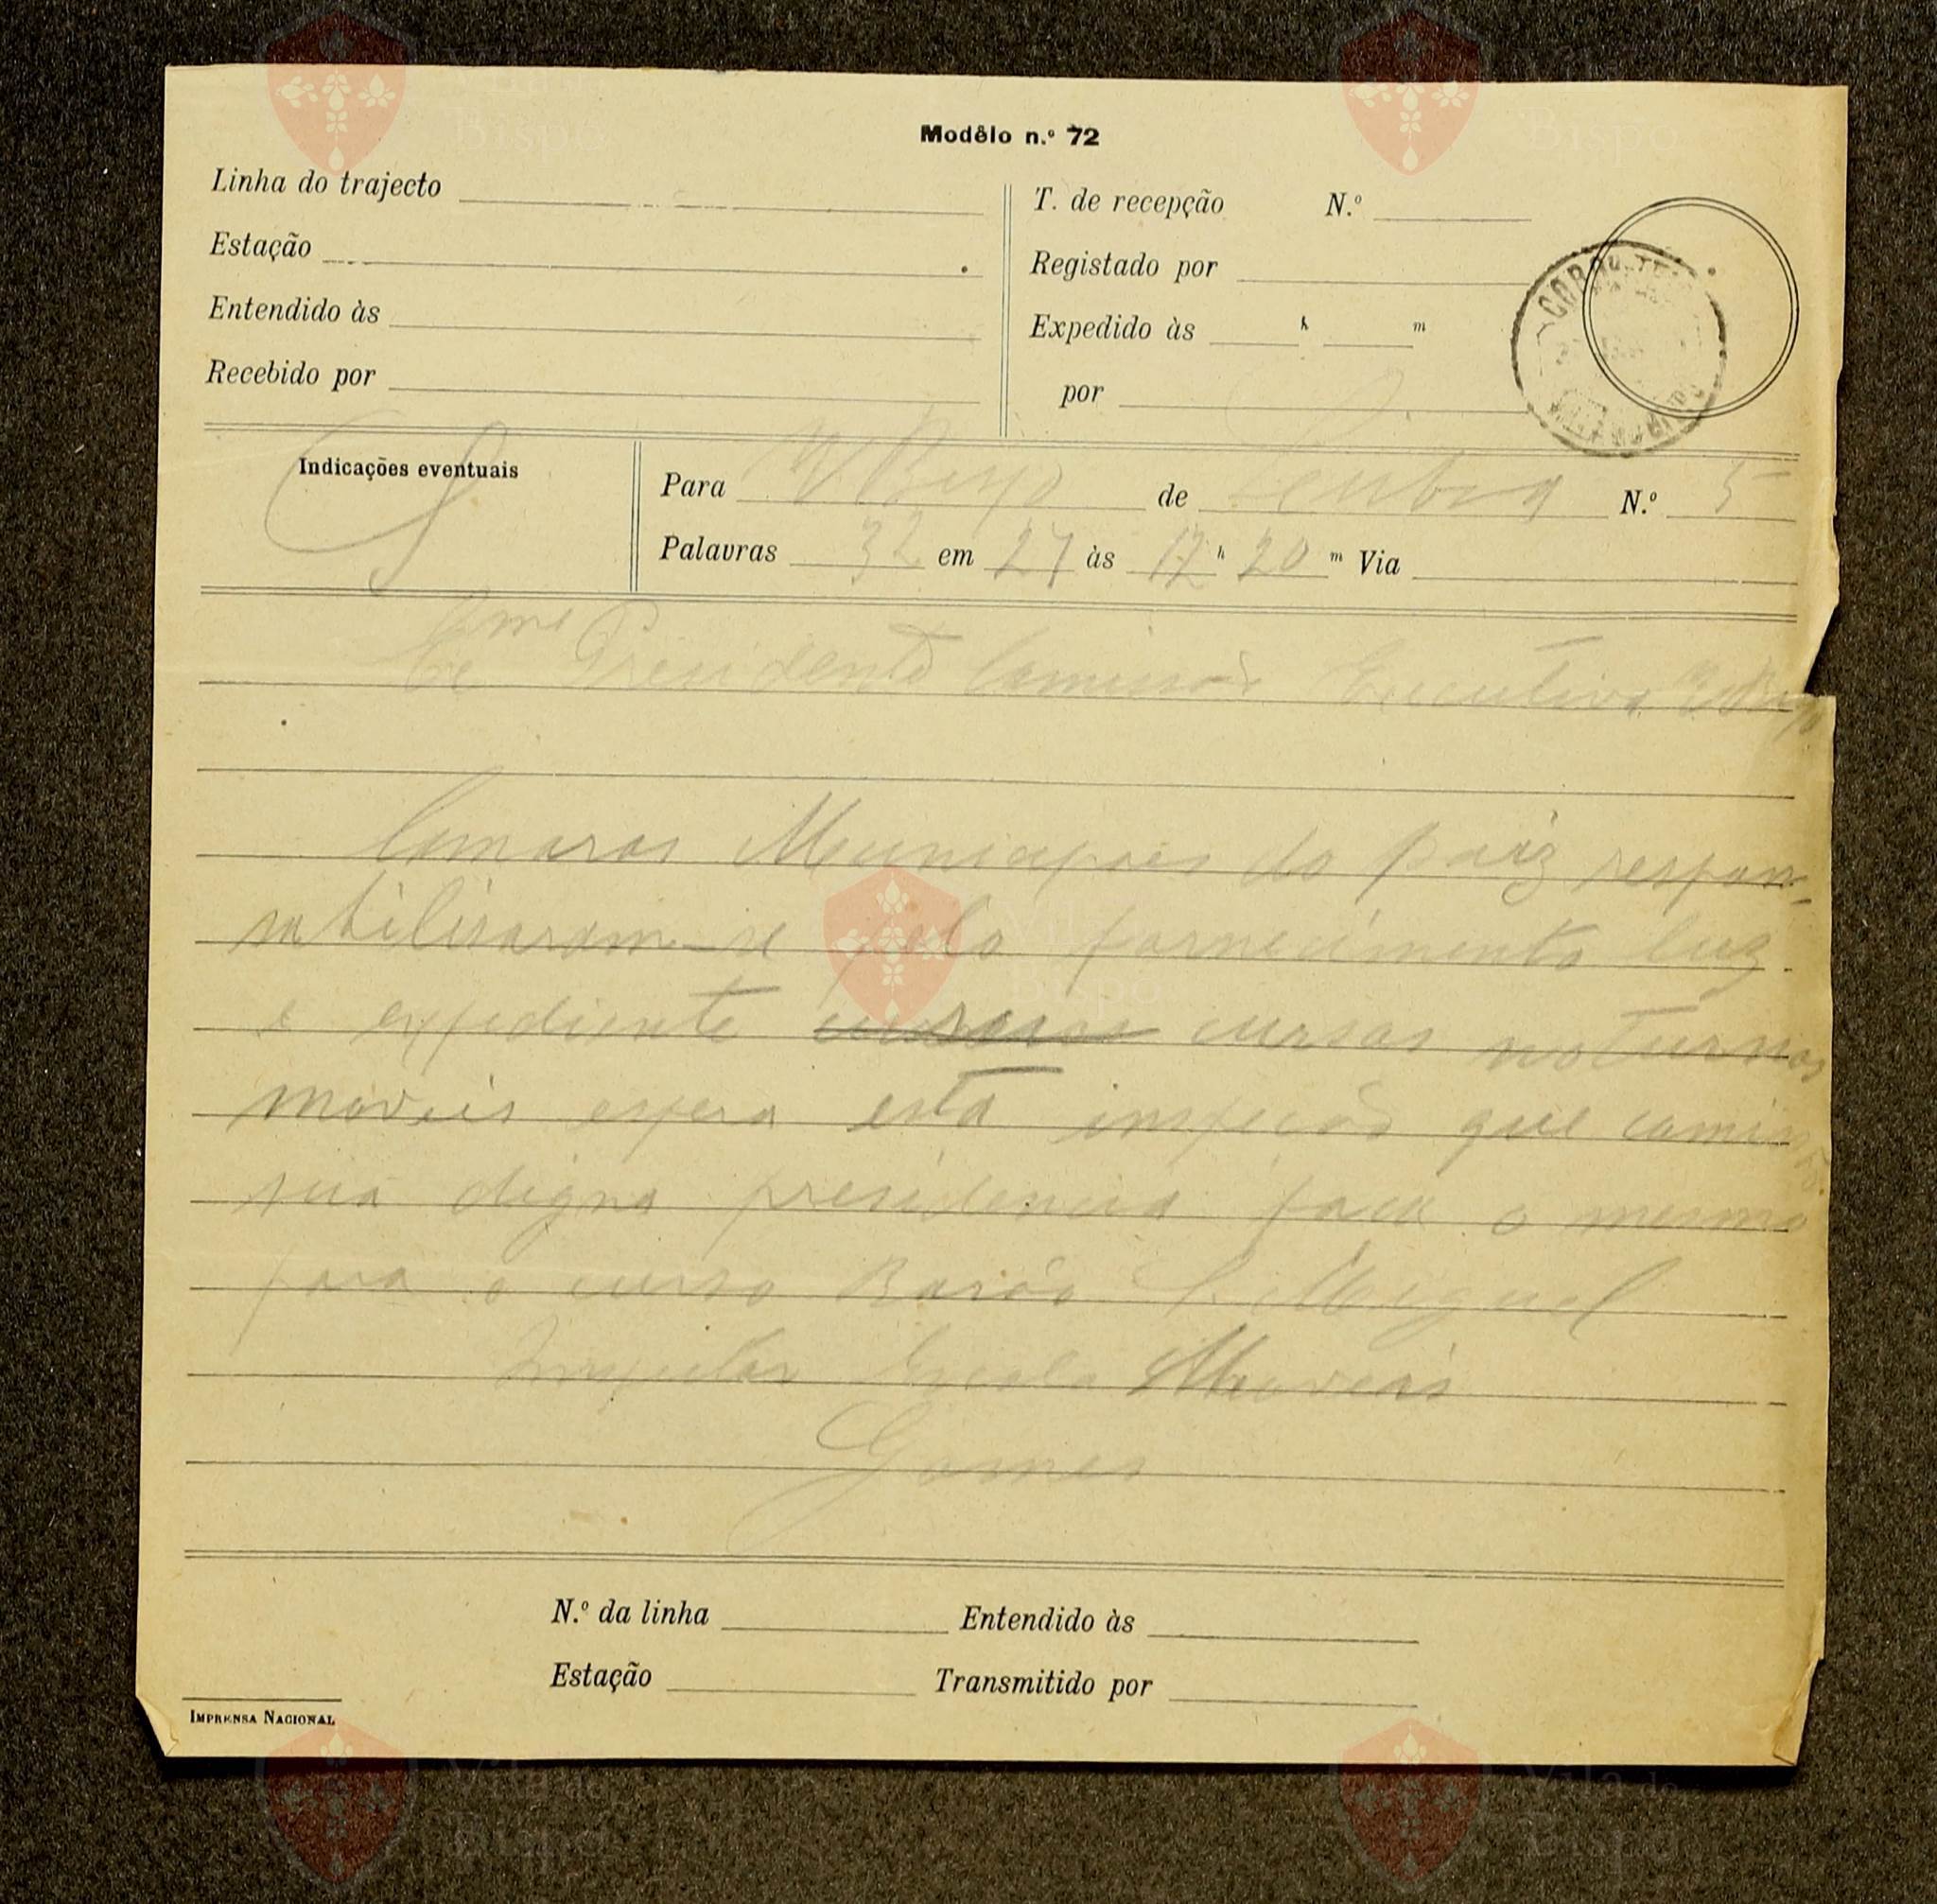 Modêlo n.º 72
Linha do trajecto
Estação
Entendido às
Recebido por
T. de recepção N.º
Registado por
Expedido às h m
por
Indicações eventuais
Para V Bispo de Lisboa N.º 5
Palavras 32 em 27 às 17 h 20 m Via
Presidente Comissão Executiva V Bispo
Camaras Municipaes do paiz respon-
sabilisaram-se pelo fornecimento luz
e expediente cursos noturnos
moveis espera esta inspeção que comissão
sua digna presidencia faça o mesmo
para o curso Barão S. Miguel
Inspector Escolas Moveis
Gomes
N.º da linha Entendido às
Estação Transmitido por
IMPRENSA NACIONAL
Vila do
Bispo